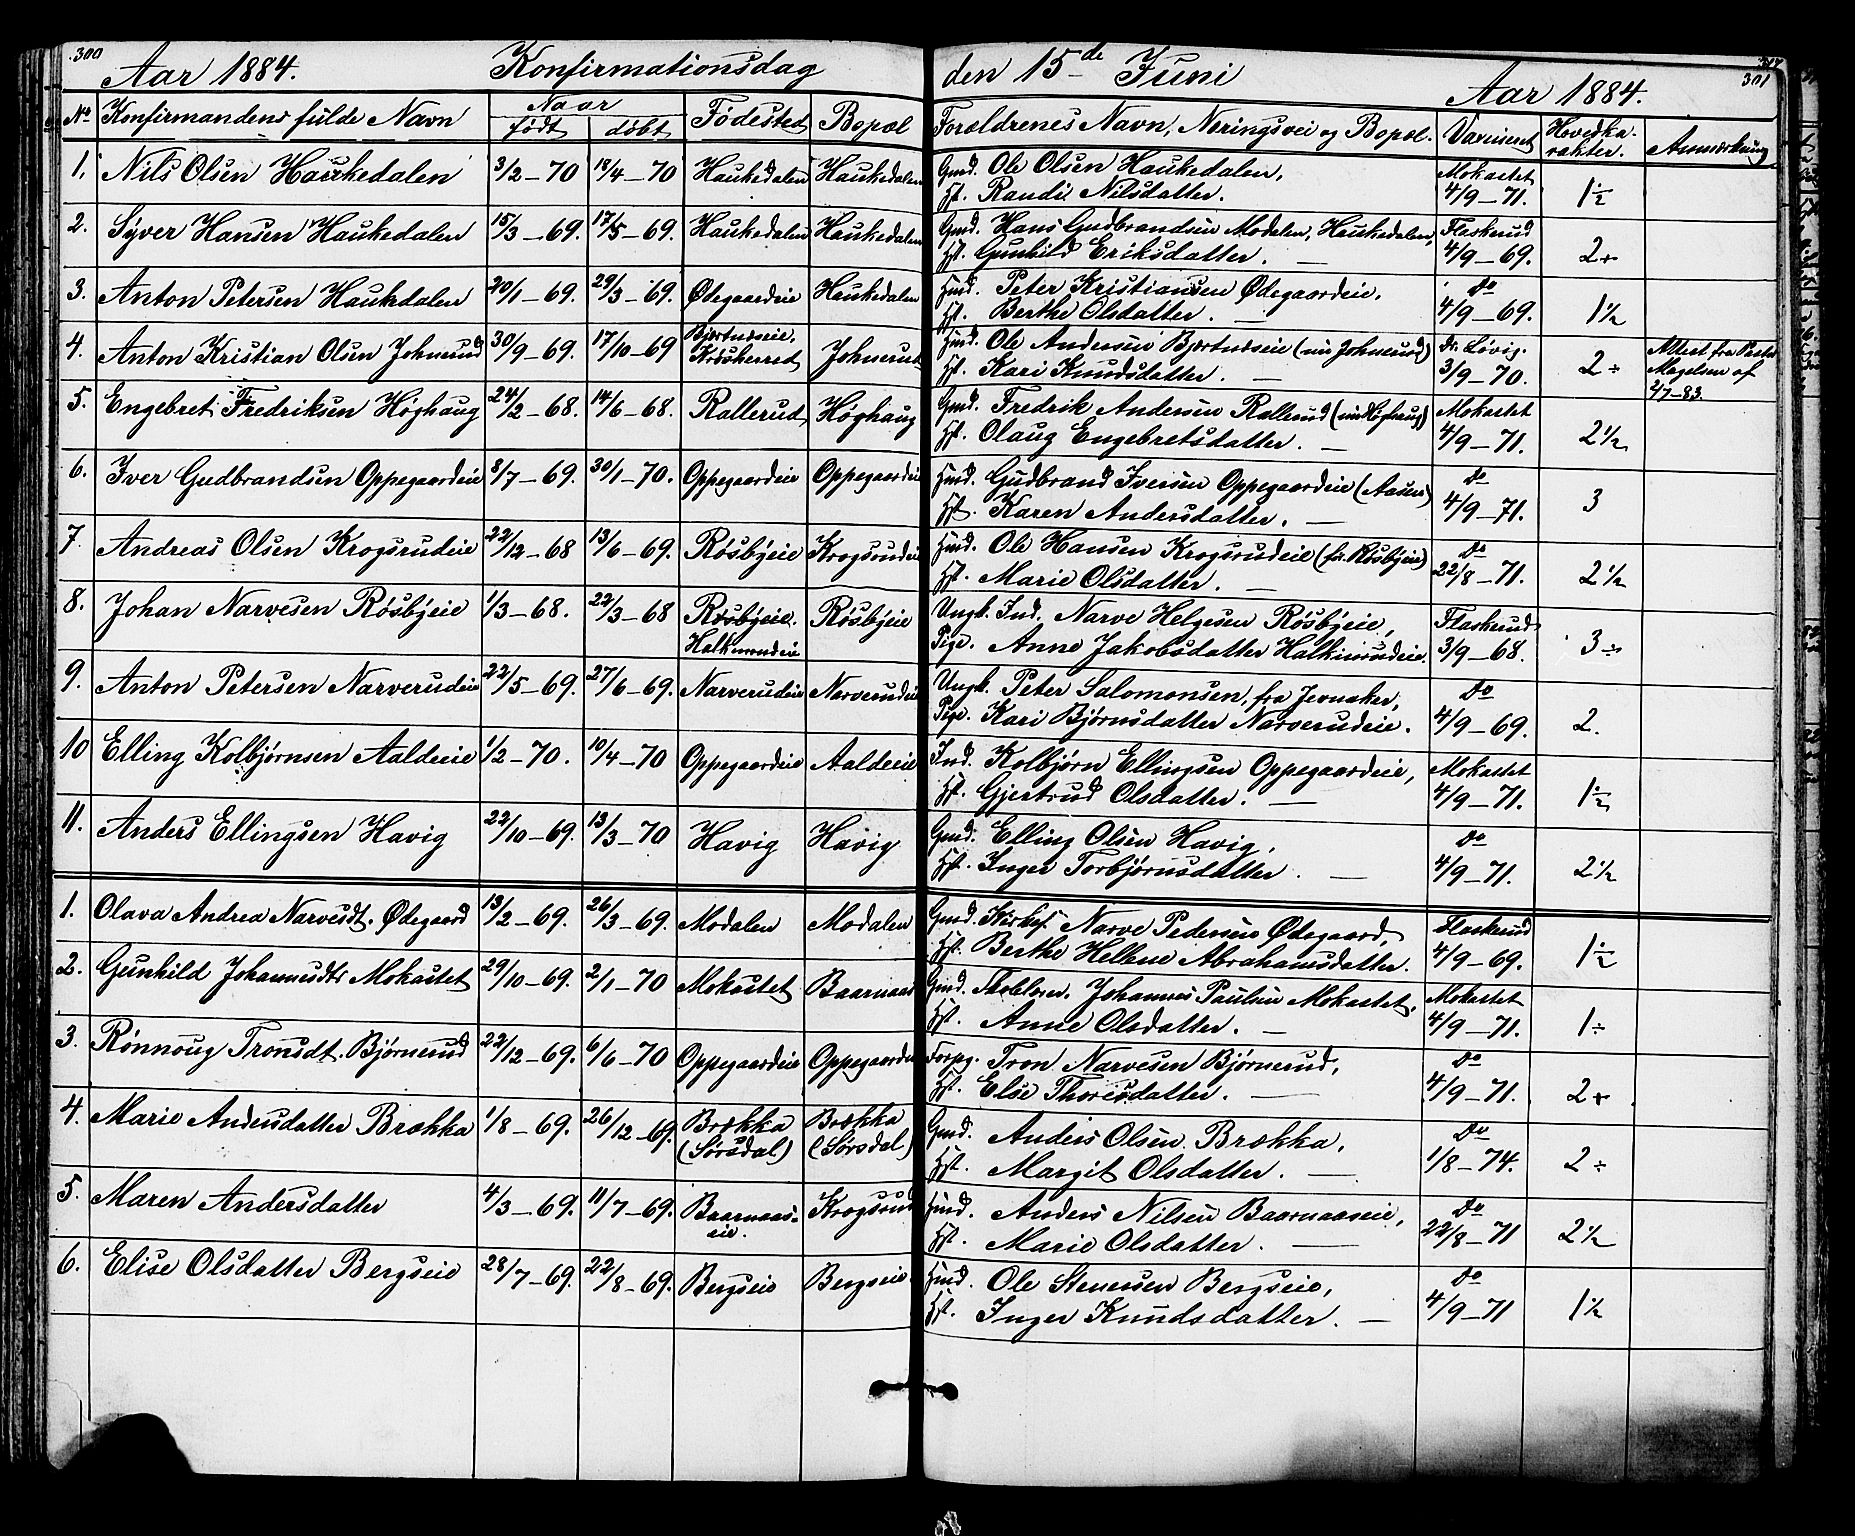 300
Aar 1884. Konfirmationsdag den 15de Juni Aar 1884. 301
No Konfirmandens fulde Navn Naar født døbt Fødested Bopæl Forældrenes Navn, Næringsvei og Bopæl. Vaccineret Hovedkarakter. Anmærkning
1. Nils Olsen Haukedalen 3/2–70 18/4–70 Haukedalen Haukedalen Gmd. Ole Olsen Haukedalen, Mokastet
Hst. Randi Nilsdatter. 4/9–71. 1½
2. Syver Hansen Haukedalen 15/3–69. 17/5–69. Haukedalen Haukedalen Gmd. Hans Gudbrandsen Modalen, Haukedalen, Flaskerud
Hst. Gunhild Eriksdatter. — 4/9–69. 2+
3. Anton Petersen Haukdalen 20/1–69. 29/3–69. Ødegaardeie Haukedalen Hmd. Peter Kristiansen Ødegaardeie. Do
Hst. Berthe Olsdatter. — 4/9–69. 1½
4. Anton Kristian Olsen Johnerud 30/9–69. 17/10–69 Bjertnæseie, Krødsherred Johnerud Hmd. Ole Andersen Bjertnæseie (nu Johnerud) Dr. Løvig.
Hst. Kari Knudsdatter. — 3/9–70. 2÷ Attest fra Pastor Magelsen af 2/7–83.
5. Engebret Fredriksen Høghaug 24/2–68. 14/6–68. Rallerud Høghaug Gmd. Fredrik Andersen Rallerud (nu Høghaug) Mokastet
Hst. Olaug Engebretsdatter. — 4/9–71. 2½
6. Iver Gudbrandsen Oppegaardeie 8/7–69. 30/1–70. Oppegaardeie Oppegaardeie Hmd. Gudbrand Iversen Oppegaardeie (Aasen) Do
Hst. Karen Andersdatter. — 4/9–71. 3
7. Andreas Olsen Krogsrudeie 22/12–68 13/6–69. Røsbyeie Krogsrudeie Hmd. Ole Hansen Krogsrudeie (før Røsbyeie) Do
Hst. Marie Olsdatter. — 22/8–71. 2½
8. Johan Narvesen Røsbyeie 1/3–68. 22/3–68 Røsbyeie. Halkinrudeie Røsbyeie Ungk. Ind. Narve Helgesen Røsbyeie, Flaskerud
Pige. Anne Jakobsdatter Halkinrudeie. 3/9–68. 3÷
9. Anton Petersen Narverudeie 22/5–69. 27/6–69. Narverudeie Narverudeie Ungk. Peter Salomonsen, fra Jevnaker, Do
Pige. Kari Bjørnsdatter Narverudeie. 4/9–69. 2.
10 Elling Kolbjørnsen Aaldeeie 1/2–70. 10/4–70 Oppegaardeie Aaldeeie Ind. Kolbjørn Ellingsen Oppegaardeie, Mokastet
Hst. Gjertrud Olsdatter. — 4/9–71. 1½
11. Anders Ellingsen Havig 22/10–69. 13/3–70 Havig Havig Gmd. Elling Olsen Havig, Do
Hst. Inger Torbjørnsdatter. — 4/9–71. 2½
1. Olava Andrea Narvesdt. Ødegaard 13/2–69. 26/3–69. Modalen Modalen Gmd. Kirks. Narve Pedersen Ødegaard, Flaskerud
Hst. Berthe Helene Abrahamsdatter. 4/9–69. 1½
2. Gunhild Johannesdtr Mokastet 29/10–69. 2/1–70 Mokastet Baarnaas Gmd. Skolelærer. Johannes Paulsen Mokastet. Mokastet
Hst. Anne Olsdatter. — 4/9–71. 1÷
3. Rønnoug Tronsdt. Bjørnerud 22/12–69. 6/6–70 Oppegaardeie Oppegaardeie Forpg. Tron Narvesen Bjørnerud, Do
Hst. Else Thoresdatter. — 4/9–71. 2+
4. Marie Andersdatter Brækka 1/8–69. 26/12–69. Brækka (Sørsdal) Brækka (Sørsdal) Gmd. Anders Olsen Brækka, Do
Hst. Margit Olsdatter. — 1/8–74. 2÷
5. Maren Andersdatter 4/3–69. 11/7–69. Baarnaaseie. Krogsrud Hmd. Anders Nilsen Baarnaaseie, Do
Hst. Marie Olsdatter. — 22/8–71 2½
6. Elise Olsdatter Bergseie 28/7–69. 22/8–69. Bergseie Bergseie. Hmd. Ole Stenersen Bergseie, Do
Hst. Inger Knudsdatter. — 4/9–71 1½